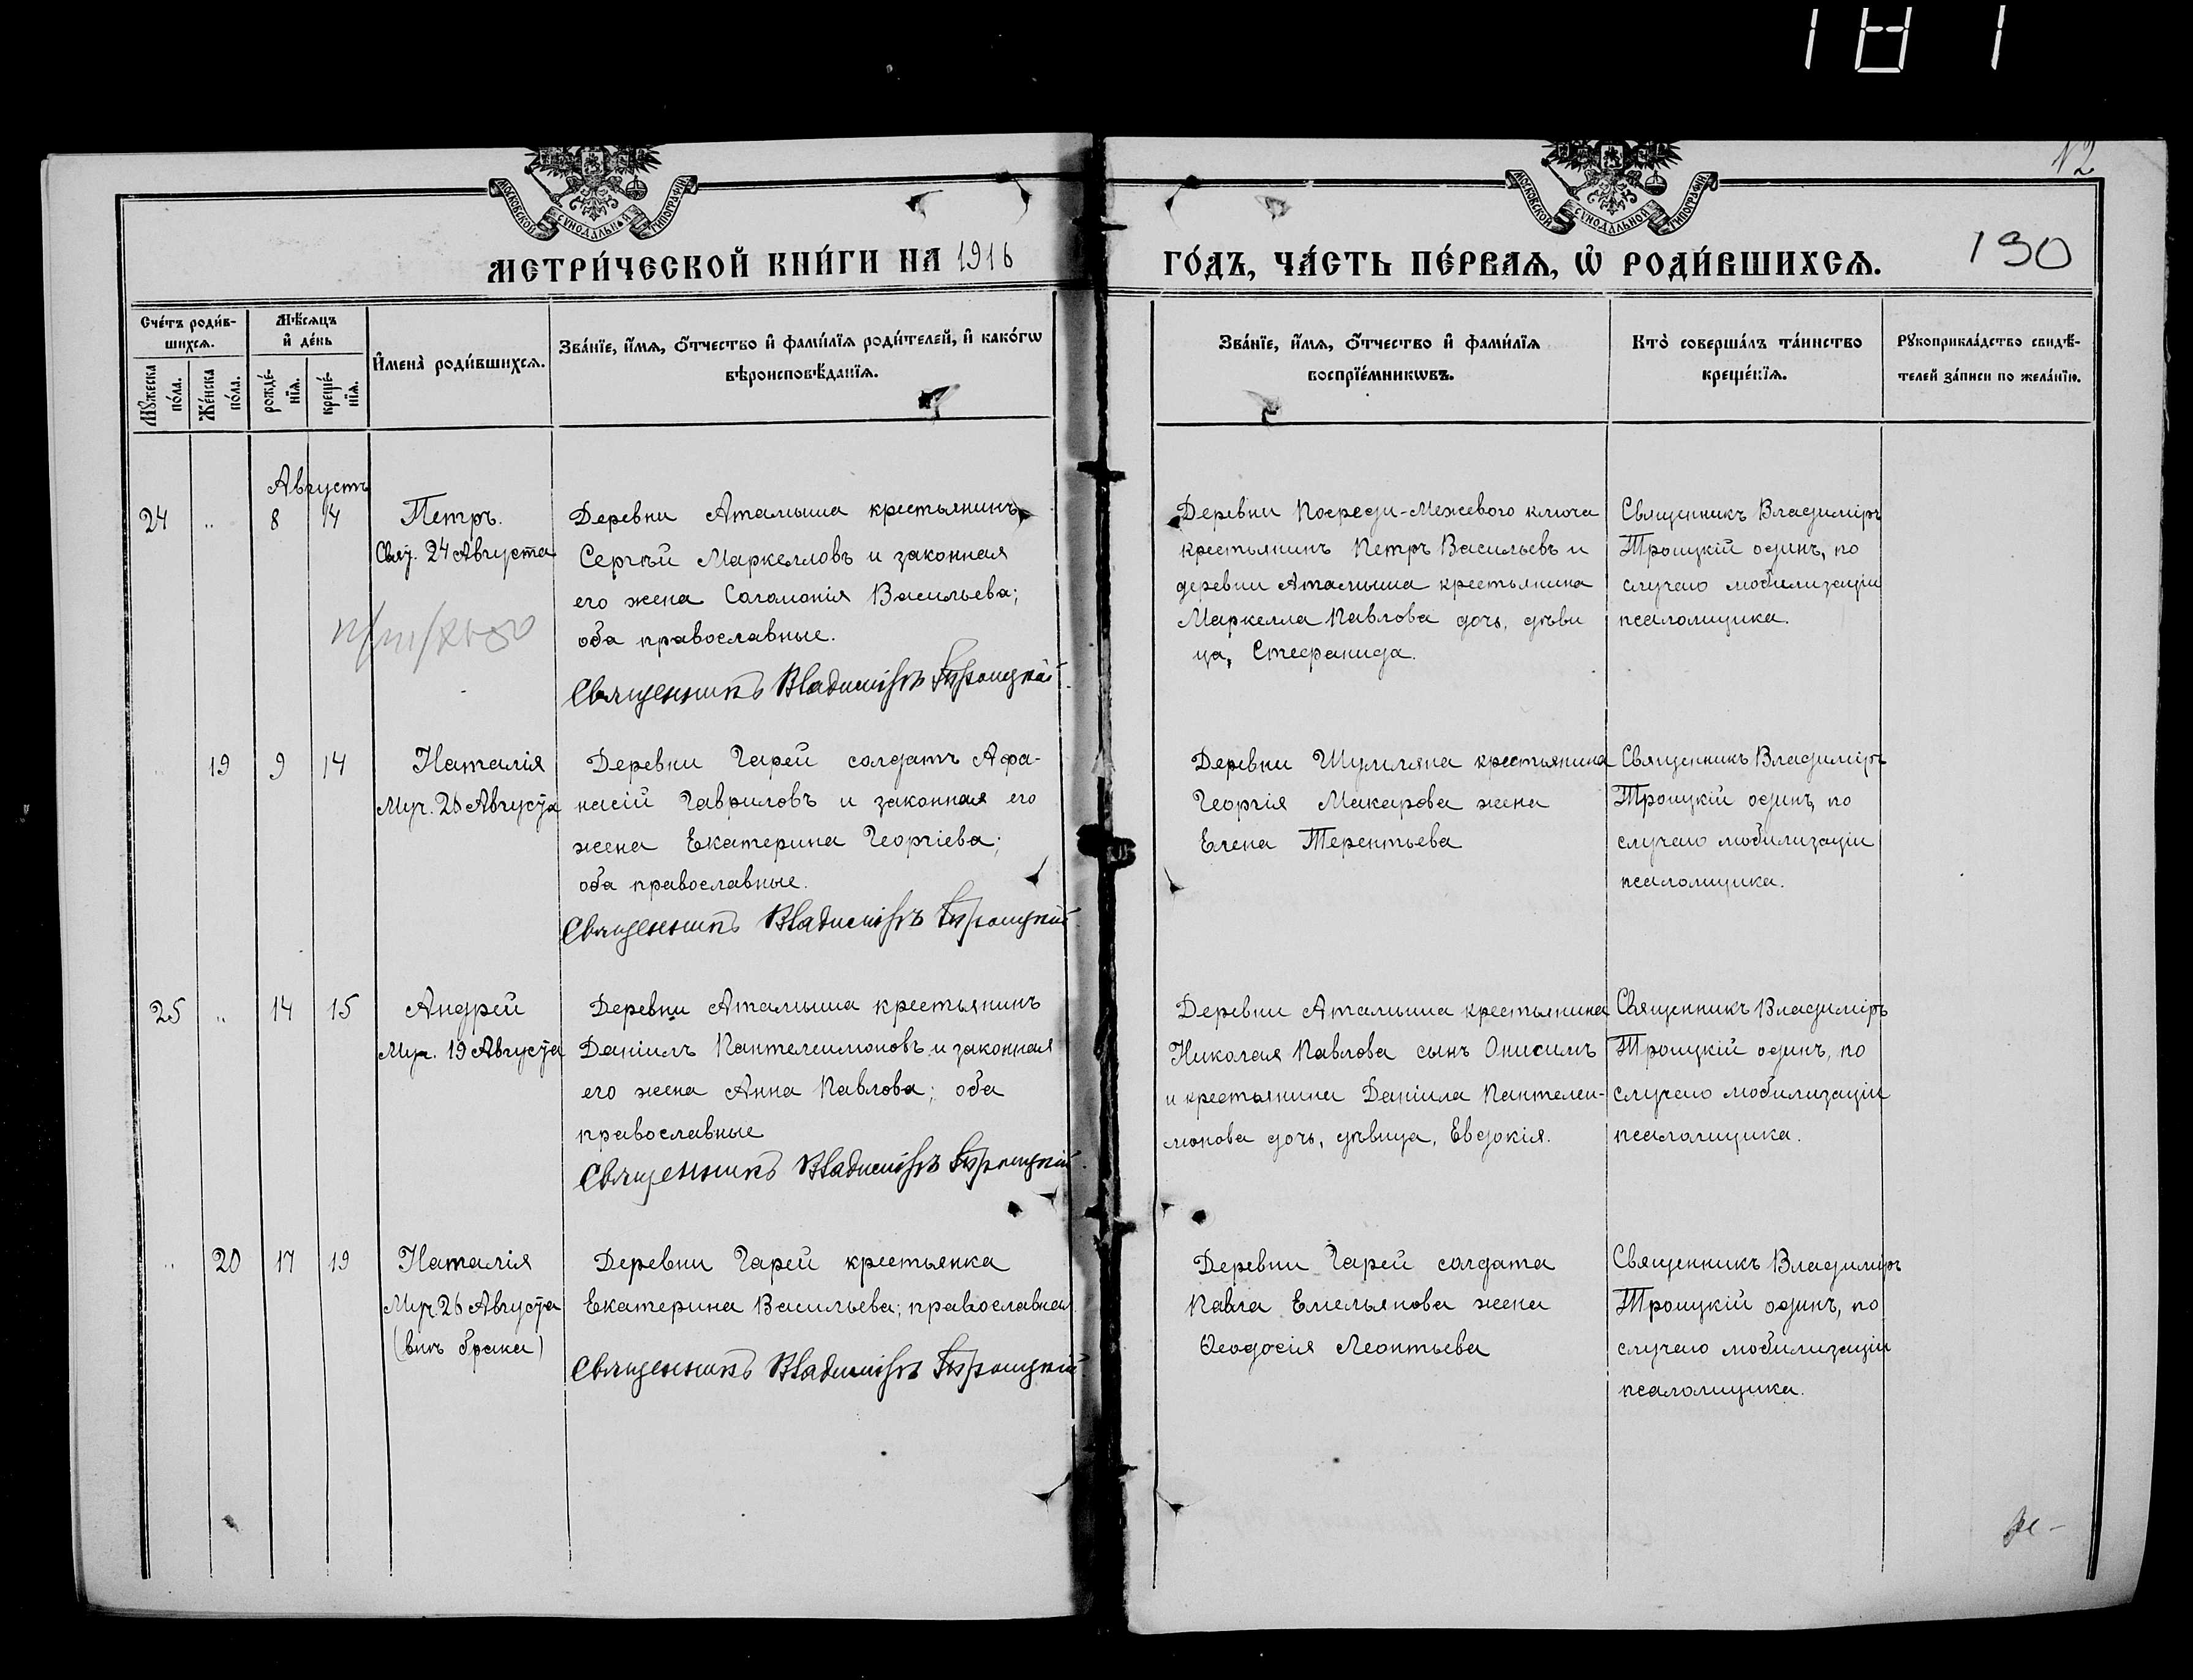 181
12
МОСКОВСКОЙ СѴНОДАЛЬНОЙ ТИПОГРАФІИ
МОСКОВСКОЙ СѴНОДАЛЬНОЙ ТИПОГРАФІИ
МЕТРИ́ЧЕСКОЙ КНИ́ГИ НА 1916
ГО́ДЪ, ЧА́СТЬ ПЕ́РВАѦ, Ѡ҆ РОДИ́ВШИХСѦ.
130
Сче́тъ роди́в-
шихсѧ.
Мꙋ́жеска
по́ла.
Же́нска
по́ла.
Мѣ́сѧцъ
и҆ де́нь
рожде́-
нїѧ.
креще́-
нїѧ.
И҆мена̀ роди́вшихсѧ.
Зва́нїе, и҆́мѧ, ѻ҆́тчество и҆ фами́лїѧ роди́телей, и҆ како́гѡ
вѣроисповѣ́данїѧ.
Зва́нїе, и҆́мѧ, ѻ҆́тчество и҆ фами́лїѧ
воспрїе́мникѡвъ.
Кто̀ соверша́лъ та́инство
креще́нїѧ.
Рꙋкоприкла́дство свидѣ́-
телей за́писи по жела́нїю.
Августъ
24 " 8 14
Петръ.
Свящ. 24 Августа
Деревни Аталыша крестьянинъ
Сергѣй Маркелловъ и законная
его жена Соломонія Васильева;
оба православные.
Священникъ Владиміръ Троицкій
Деревни Посреди-Межевого ключа
крестьянинъ Петръ Васильевъ и
деревни Аталыша крестьянина
Маркелла Павлова дочь, дѣви
ца, Стефанида.
Священникъ Владиміръ
Троицкій одинъ, по
случаю мобилизаціи
псаломщика.
" 19 9 14
Наталія
Муч. 26 Августа
Деревни Гарей солдатъ Афа-
насій Гавриловъ и законная его
жена Екатерина Георгіева;
оба православные.
Священникъ Владиміръ Троицкій
Деревни Шумляна крестьянина
Георгія Макарова жена
Елена Терентьева
Священникъ Владиміръ
Троицкій одинъ, по
случаю мобилизаціи
псаломщика.
25 " 14 15
Андрей
Муч. 19 Августа
Деревни Аталыша крестьянинъ
Даніилъ Пантелеимоновъ и законная
его жена Анна Павлова; оба
православные
Священникъ Владиміръ Троицкій
Деревни Аталыша крестьянина
Николая Павлова сынъ Онисимъ
и крестьянина Даніила Пантелеи-
монова дочь, дѣвица, Евдокія.
Священникъ Владиміръ
Троицкій одинъ, по
случаю мобилизаціи
псаломщика.
" 20 17 19
Наталія
Муч. 26 Августа
(внѣ брака)
Деревни Гарей крестьянка
Екатерина Васильева; православная.
Священникъ Владиміръ Троицкій
Деревни Гарей солдата
Павла Емельянова жена
Ѳеодосія Леонтьева
Священникъ Владиміръ
Троицкій одинъ, по
случаю мобилизаціи
псаломщика.